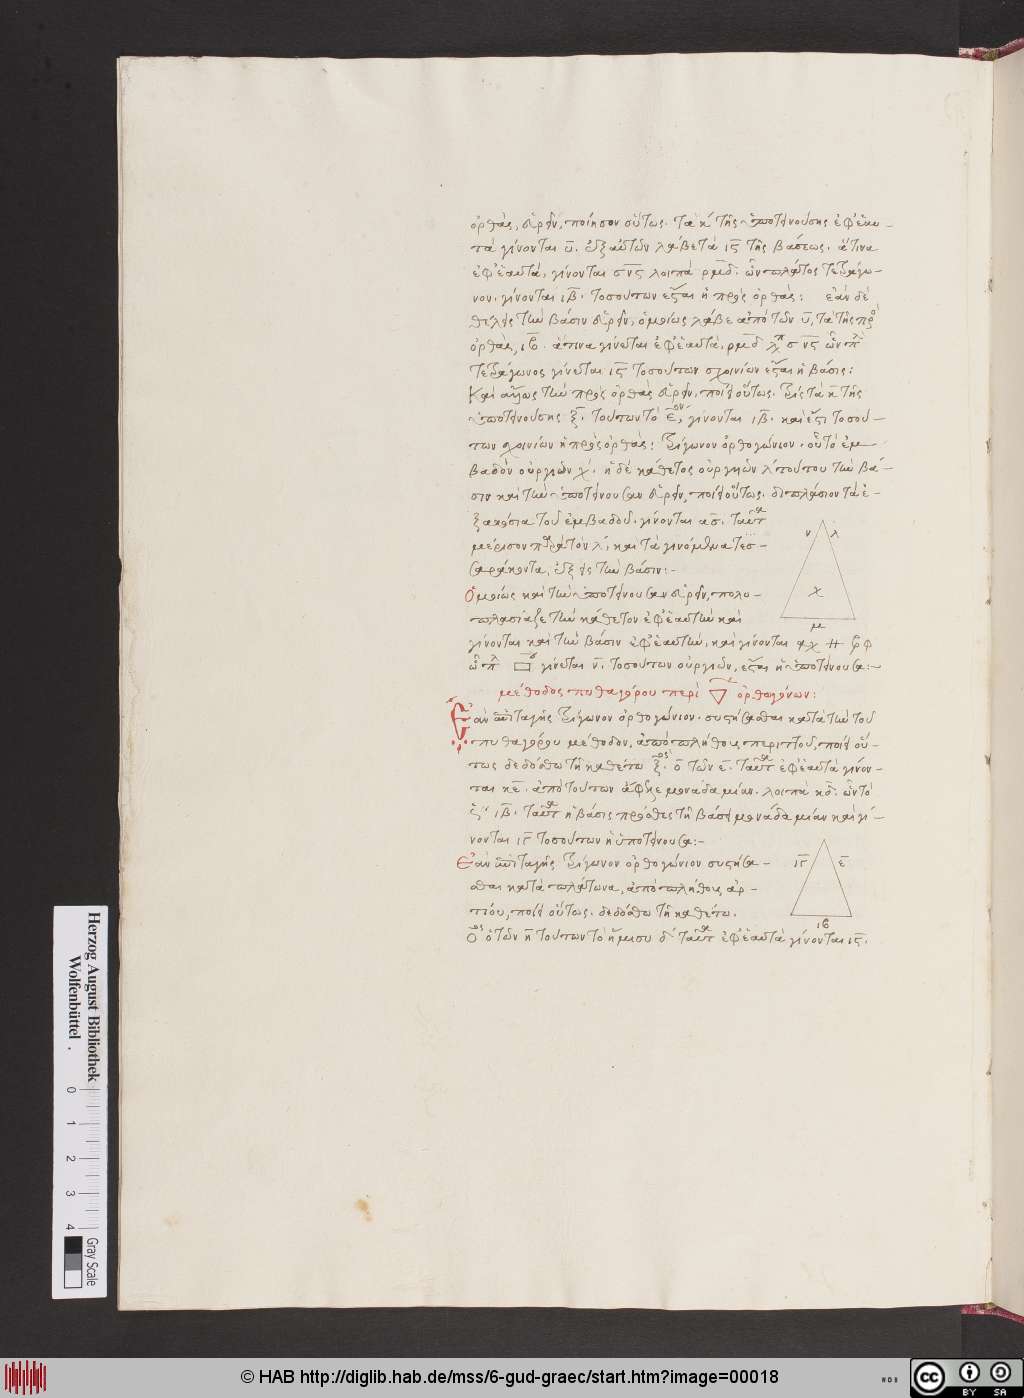 ὀρθὰς, εὑρεῖν, ποίησον οὕτως. τὰ κ̄ τῆς ὑποτεινούσης ἐφ' ἑαυ-
τὰ γίνονται ῡ. ἐξ αὐτῶν λάβε τὰ ις̄ τῆς βάσεως. ἅτινα
ἐφ' ἑαυτά, γίνονται σν̄ς λοιπὰ ρμ̄δ. ὧν πλάτος τετράγω-
νον. γίνονται ιβ̄. τοσούτων ἔσται ἡ πρὸς ὀρθάς: ἐὰν δὲ
θέλῃς τὴν βάσιν εὑρεῖν, ὁμοίως λάβε ἀπὸ τῶν ῡ, τὰ τῆς πρὸ
ὀρθὰς, ιβ̄. ἅτινα γίνεται ἐφ' ἑαυτά, ρμ̄δ λπ σν̄ς ὧν πλ
τετράγωνος γίνεται ις̄ τοσούτων σχοινίων ἔσται ἡ βάσις:
Καὶ ἄλλως τὴν πρὸς ὀρθὰς εὑρεῖν, ποίει οὕτως. τρὶς τὰ κ̄ τῆς
ὑποτεινούσης ξ̄. τούτων τὸ ε̄ον, γίνονται ιβ̄. καὶ ἔστι τοσού-
των σχοινίων ἡ πρὸς ὀρθάς: τρίγωνον ὀρθογώνιον. οὗ τὸ ἐμ-
βαδὸν οὐργιῶν χ̄. ἡ δὲ κάθετος οὐργιῶν λ̄ τούτου τὴν βά-
σιν καὶ τὴν ὑποτείνουσαν εὑρεῖν, ποίει οὕτως. διπλάσιον τὰ ἑ-
ξακόσια τοῦ ἐμβαδοῦ. γίνονται ας̄. ταῦτα
μέρισον παρὰ τὸν λ̄, καὶ τὰ γινόμενα τεσ-
σαράκοντα, ἕξεις τὴν βάσιν:-
Ὁμοίως καὶ τὴν ὑποτείνουσαν εὑρεῖν, πολυ-
πλασίαζε τὴν κάθετον ἐφ' ἑαυτὴν καὶ
γίνονται καὶ τὴν βάσιν ἐφ' ἑαυτήν, καὶ γίνονται αχ βφ
ὧν πλ □ γίνεται ν̄. τοσούτων οὐργιῶν, ἔσται ἡ ὑποτείνουσα:-
μέθοδος πυθαγόρου περὶ ▽ ὀρθογώνων:
Ἐὰν ἐπιταγῇς τρίγωνον ὀρθογώνιον. συστήσασθαι κατὰ τὴν τοῦ
πυθαγόρου μέθοδον, ἀπὸ πλήθους περιττοῦ, ποίει οὕ-
τως δεδόσθω τῇ καθέτῳ ὁ τῶν ε̄. ταῦτα ἐφ' ἑαυτὰ γίνον-
ται κε̄. ἀπὸ τούτων ἄφελε μονάδα μίαν. λοιπὰ κδ̄. ὧν τὸ
ἥμισυ ιβ̄. ταῦτα ἡ βάσις πρόσθες τῇ βάσει μονάδα μίαν καὶ γί-
νονται ιγ̄ τοσούτων ἡ ὑποτείνουσα:-
Ἐὰν ἐπιταγῇς τρίγωνον ὀρθογώνιον συστήσα-
σθαι κατὰ πλάτωνα, ἀπὸ πλήθους ἀρ-
τίου, ποίει οὕτως. δεδόσθω τῇ καθέτῳ.
ὁ τῶν η̄ τούτων τὸ ἥμισυ δ̄. ταῦτα ἐφ' ἑαυτὰ γίνονται ις̄.
ν λ
χ
μ
ιγ̄ ε̄
ιβ
Herzog August Bibliothek
Wolfenbüttel .
0 1 2 3 4
Gray Scale
© HAB http://diglib.hab.de/mss/6-gud-graec/start.htm?image=00018
cc BY SA